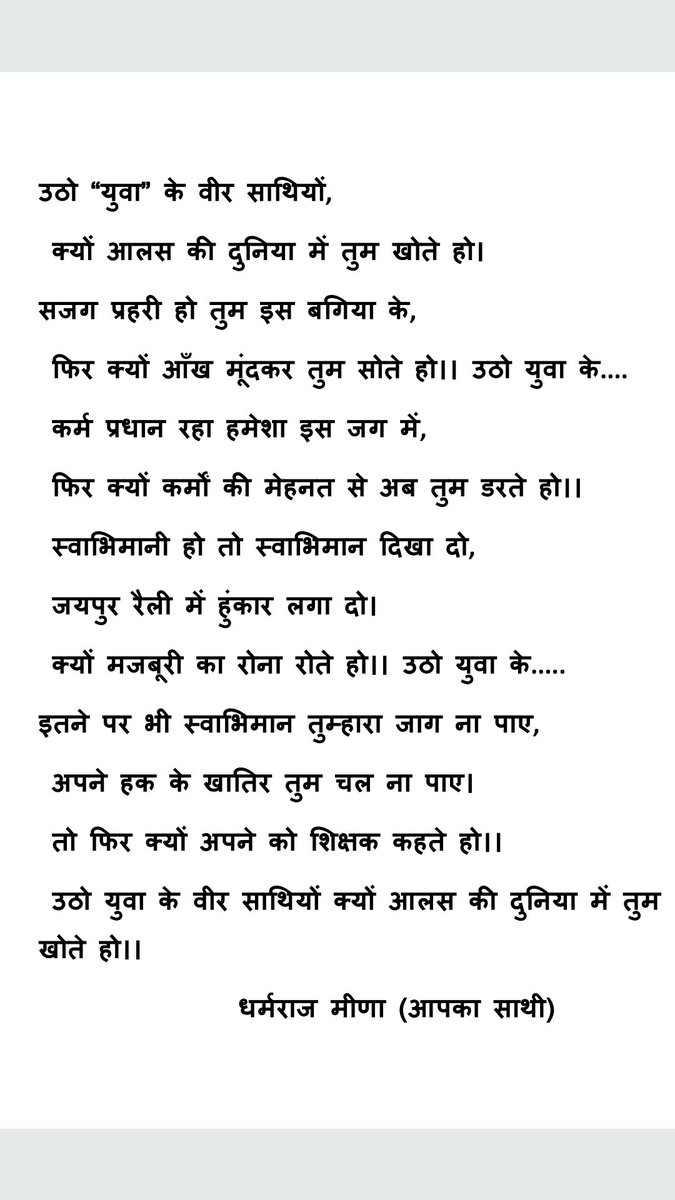 उठो “युवा” के वीर साथियों,
क्यों आलस की दुनिया में तुम खोते हो।
सजग प्रहरी हो तुम इस बगिया के,
फिर क्यों आँख मूंदकर तुम सोते हो।। उठो युवा के....
कर्म प्रधान रहा हमेशा इस जग में,
फिर क्यों कर्मों की मेहनत से अब तुम डरते हो।।
स्वाभिमानी हो तो स्वाभिमान दिखा दो,
जयपुर रैली में हुंकार लगा दो।
क्यों मजबूरी का रोना रोते हो।। उठो युवा के.....
इतने पर भी स्वाभिमान तुम्हारा जाग ना पाए,
अपने हक के खातिर तुम चल ना पाए।
तो फिर क्यों अपने को शिक्षक कहते हो।।
उठो युवा के वीर साथियों क्यों आलस की दुनिया में तुम
खोते हो।।
धर्मराज मीणा (आपका साथी)